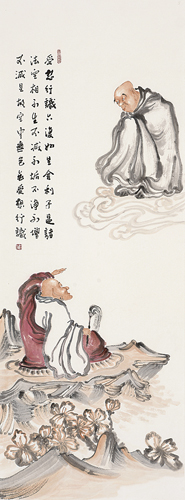 受想行識亦復如是舍利子是諸
法空相不生不滅不垢不淨不增
不減是故空中無色無受想行識